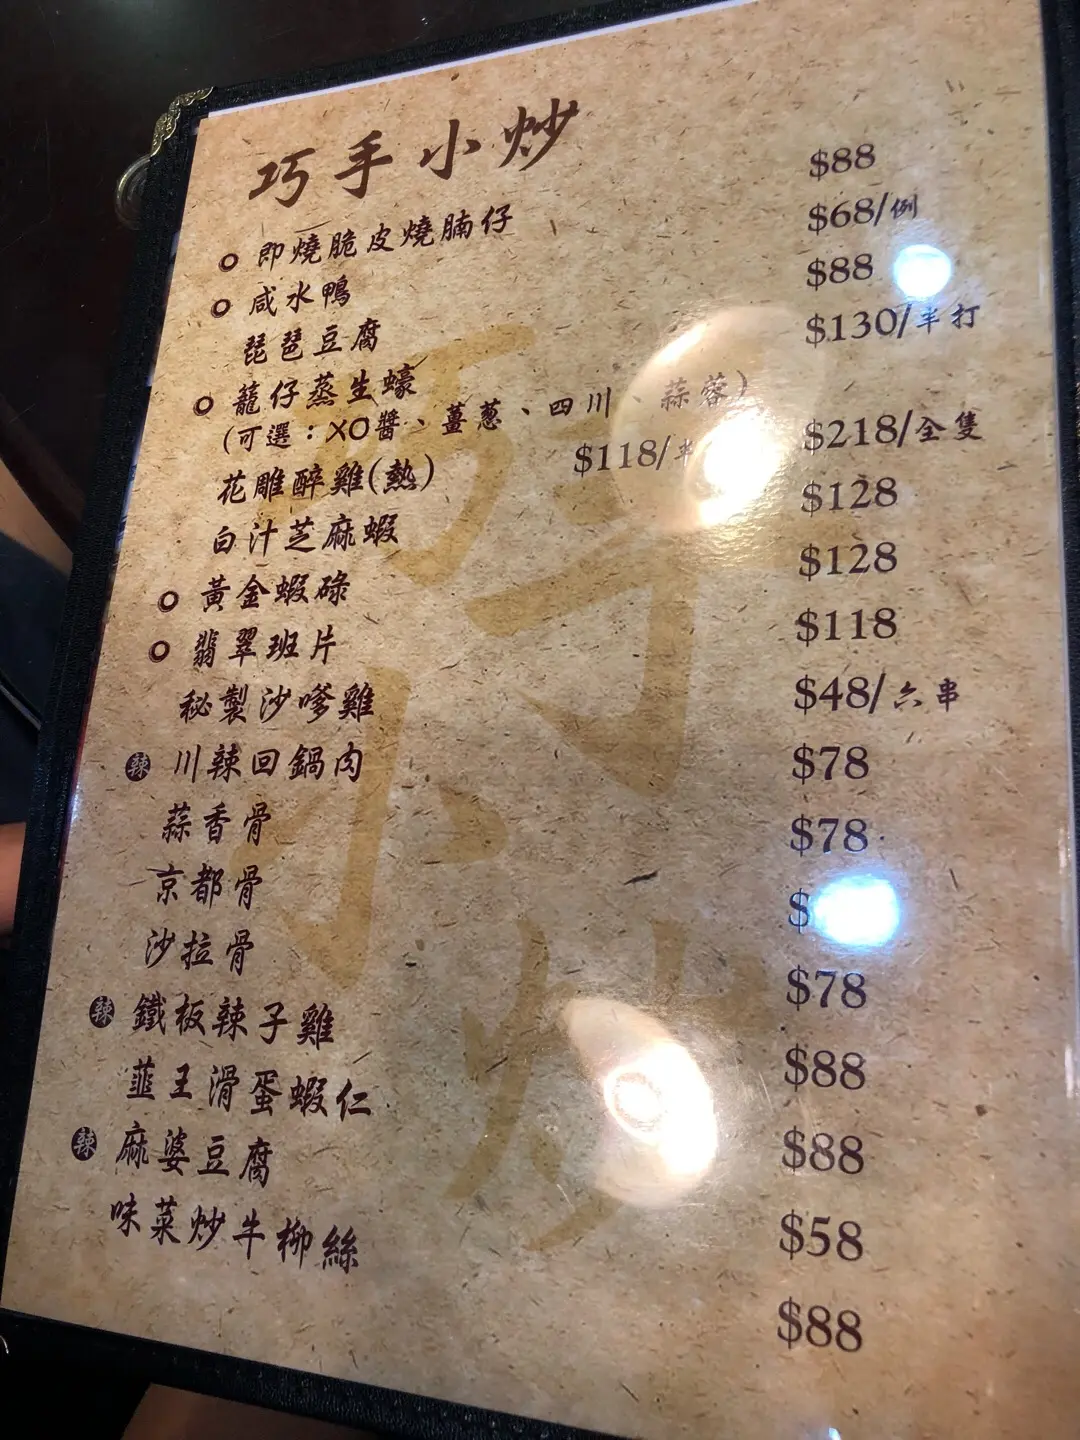 巧手小炒
即燒脆皮燒腩仔 $88
咸水鴨 $68/例
琵琶豆腐 $88
籠仔蒸生蠔 $130/半打
(可選：XO醬、薑蔥、四川、蒜蓉)
花雕醉雞(熱) $118/半 $218/全隻
白汁芝麻蝦 $128
黃金蝦碌 $128
翡翠班片 $118
秘製沙嗲雞 $48/六串
辣 川辣回鍋肉 $78
蒜香骨 $78
京都骨 $
沙拉骨 $78
辣 鐵板辣子雞 $88
韮王滑蛋蝦仁 $88
辣 麻婆豆腐 $58
味菜炒牛柳絲 $88